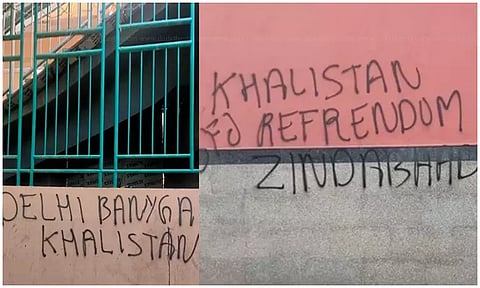 DELHI BANYGA
KHALISTAN
KHALISTAN
REFRENDUM
ZINDABAAD